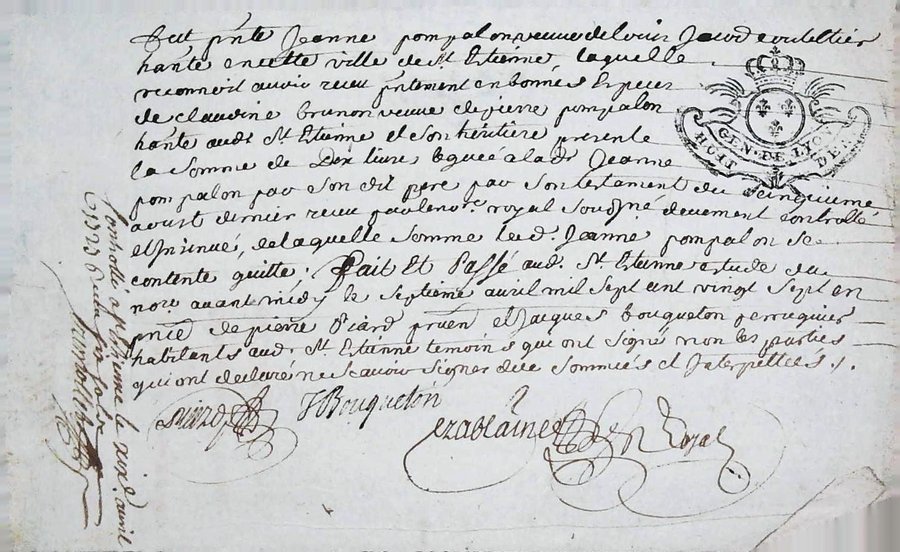 fut pnte Jeanne pompalon veuve de Louis Jourd coutellier
hante en cette ville de st Etienne, laquelle
reconnoit avoir receu pntement en bonnes Especes
de claudine brunon veuve de pierre pompalon
hante audt St Etienne et son héritière presente
la somme de Dix livres leguée a lade Jeanne
pompalon par son dit pere par son testament du cinquieme
aoust dernier receu par le nore royal sousigné deuement controllé
et Insinué, de laquelle somme lad. Jeanne pompalon se
contente quitte; Fait Et Passé aud. St Etienne estude du
nore avant midy le septieme avril mil sept cent vingt sept en
pnce de pierre Piard pruen et Jacques bouqueton perruquier
habitants aud. St Etienne temoins qui ont signé non les parties
qui ont declaré ne scavoir signer de ce sommées et Interpellées ./.
JBouqueton
Royal
HUIT
GEN. DE LYON
DEN.
Controllé a st etienne le dixe avril
1727